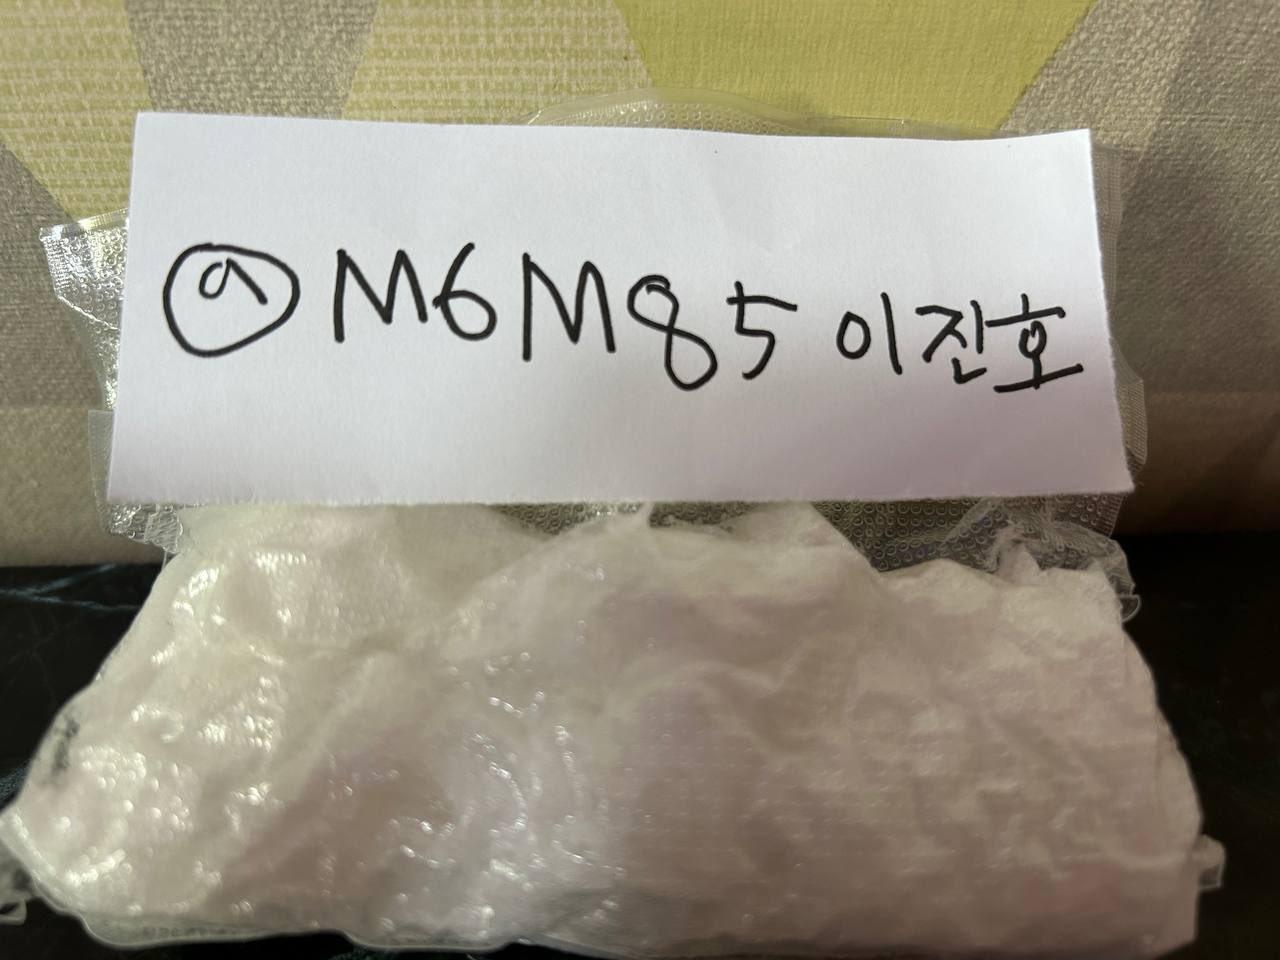 ⓐ M6M85 이진호